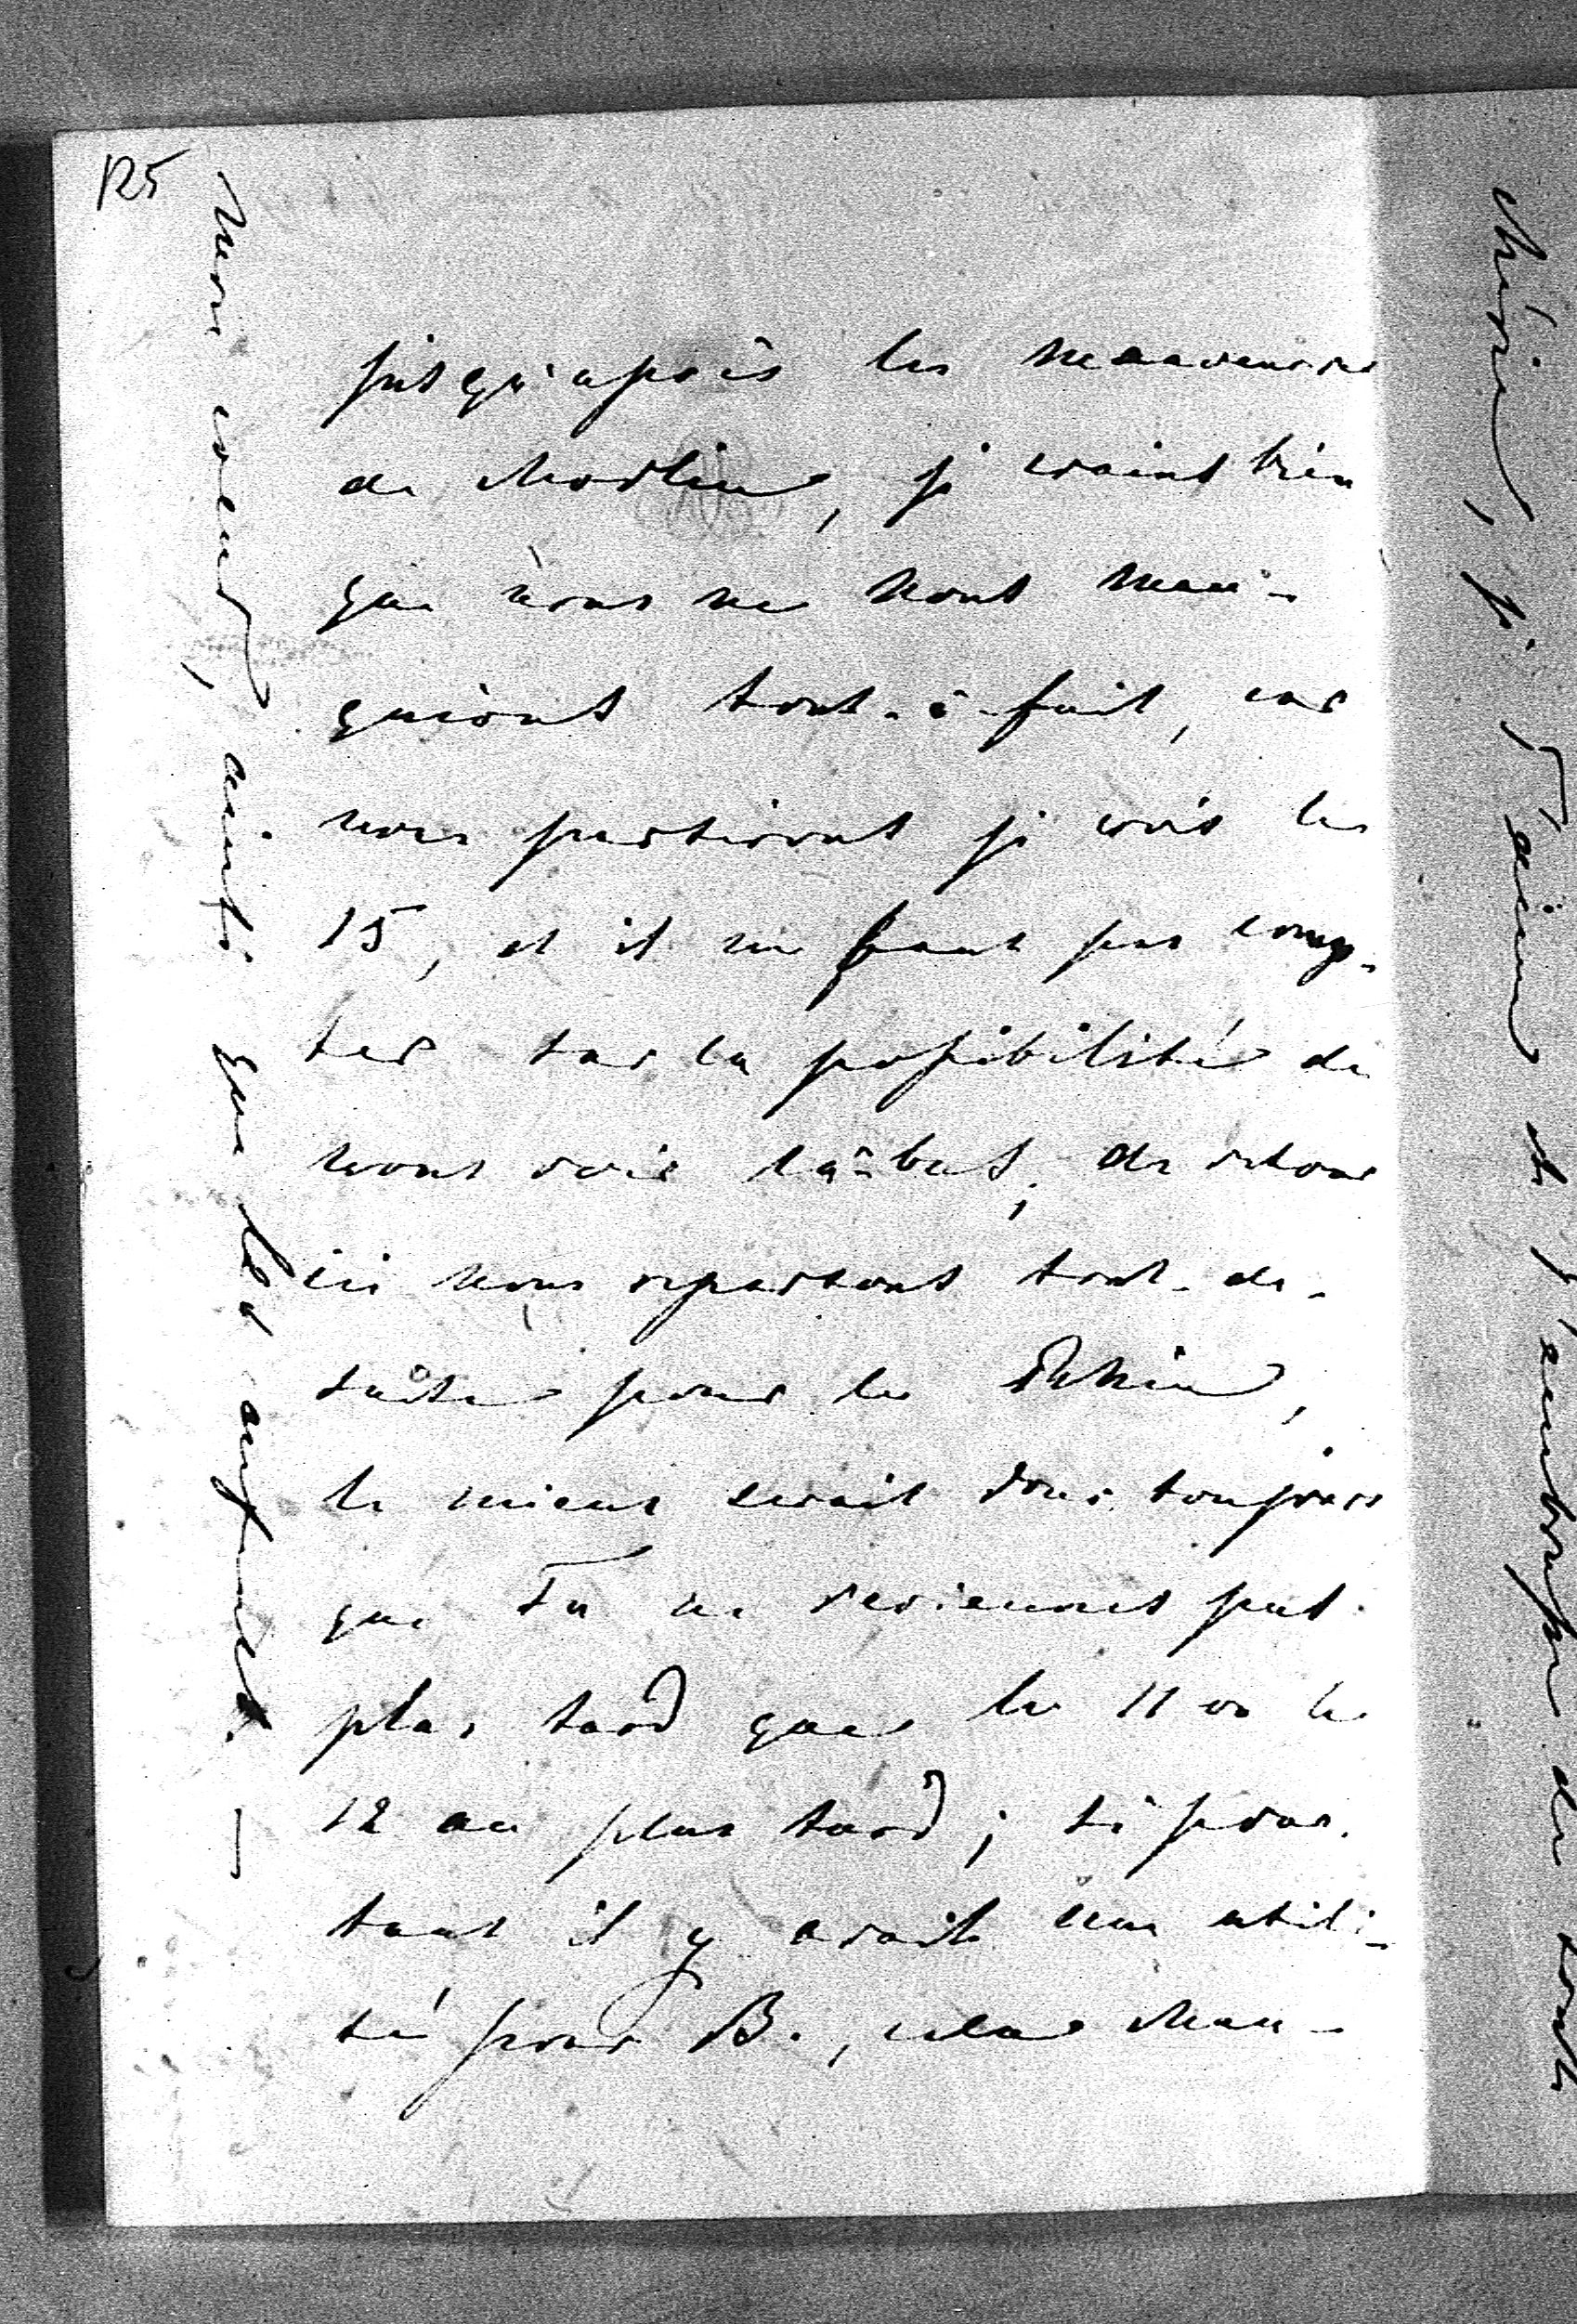 125
jusqu'après les manoeuvres
de Modlin, je crains bien
que nous ne nous man-
quions tout-à-fait, car
nous partirons je crois le
15, et il ne faut pas comp-
ter sur la possibilité de
nous voir là-bas; de retour
ici nous repartons tout-de-
suite pour le Rhin,
le mieux serait donc toujours
que Tu ne reviennes pas
plus tard que le 11 ou le
12 au plus tard; si pour-
tant il y avait une utili-
té pour B., cela chan-
Mon coeur, ainsi que les enfants. —
chérie, je T'aime et T'embrasse de tout